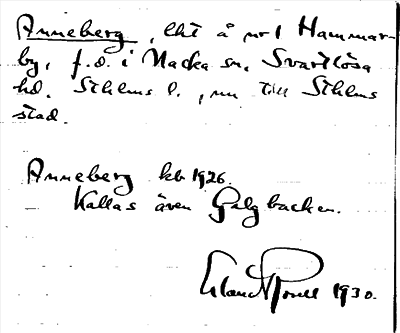 Anneberg, lht å nr 1 Hammar-
by, f.d. i Nacka sn, Svartlösa
hd. Sthlms l., nu till Sthlms
stad.
Anneberg kb 1926.
Kallas även Galgbacken.
1930.